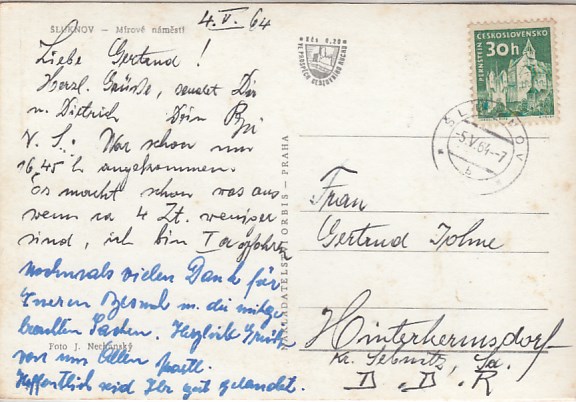 ŠLUKNOV – Mírové náměstí
4.V.64
Liebe Gertraud!
Herzl. Grüße, sendet Dir
u. Dietrich Dein
N. S.: War schon um
16,45 h angekommen.
Es macht schon was aus
wenn ca 4 Zt. weniger
sind, ich bin
nochmals vielen Dank für
Eueren Besuch u. die mitge
brachten Sachen. Herzliche Grüße
von uns Allen
Hoffentlich seid Ihr gut gelandet.
Foto J. Nechanský
NAKLADATELSTVÍ ORBIS – PRAHA
Kčs 0,20
VE PROSPĚCH CESTOVNÍHO RUCHU
ČESKOSLOVENSKO
PERNŠTEJN
30h
ŠLUKNOV
-5.V.64-7
b
Frau
Gertrud Johne
Hinterhermsdorf
Kr. Sebnitz, Sa.
D. D. R